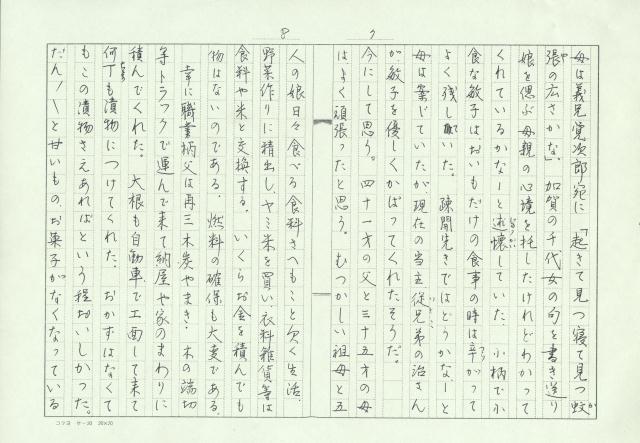 7
母は義兄覚次郎宛に「起きて見つ寝て見つ蚊
張の広さかな」加賀の千代女の句を書き送り
娘を偲ぶ母親の心境を托したけれどわかって
くれているかなーと述懐していた 小柄で小
食な敏子はおいもだけの食事の時は辛がって
よく残していた。 疎開先ではどうかなーと
母は案じていたが現在の当主従兄弟の治さん
が敏子を優しくかばってくれたそうだ。
今にして思う。四十一才の父と三十五才の母
はよく頑張ったと思う。 むつかしい祖母と五
8
人の娘日々食べる食料さへもこと欠く生活、
野菜作りに精出し、ヤミ米を買い、衣料雑貨等は
食料や米と交換する。いくらお金を積んでも
物はないのである。燃料の確保も大変である。
幸に職業柄父は再三木炭やまき、木の端切
等トラックで運んで来て納屋や家のまわりに
積んでくれた。 大根も自動車で工面して来て
何丁も漬物につけてくれた。 おかずはなくて
もこの漬物さえあればという程おいしかった。
だん〱と甘いもの、お菓子がなくなっている
コクヨ ケ-20 20×20